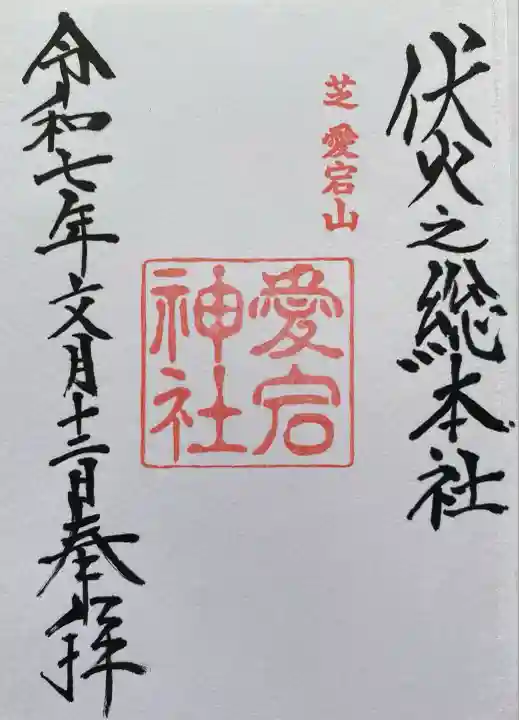 伏火之総本社
芝愛宕山
愛宕
神社
令和七年文月十二日奉拝